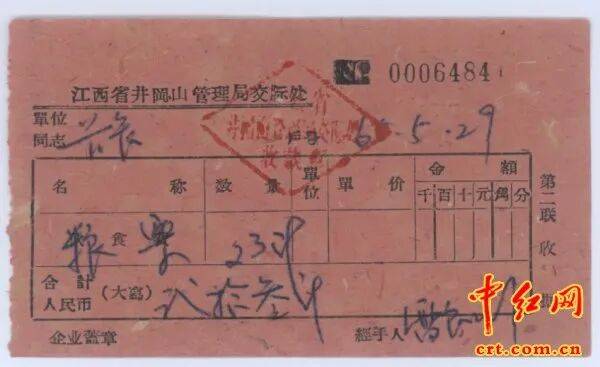 № 0006484
江西省井岡山管理局交际处
單位
同志 65.5.29
名 稱 数 量 單位 單 价 金 額
千 百 十 元 角 分
粮食票 23斤
合計
人民币 (大寫) 弍拾叁斤
企业蓋章 經手人
第二联 收
收款
中红网
crt.com.cn